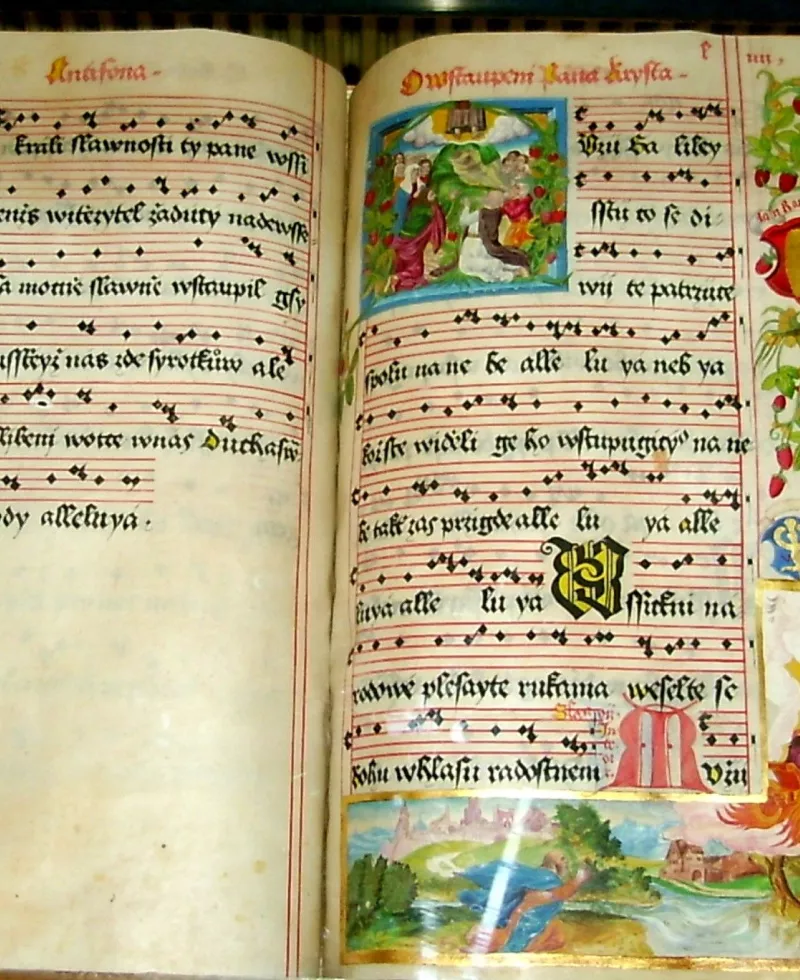 Antifona
krali slawnosti ty pane wssi
witiezytel zaduity nadewsse
a motnie slawnie wstaupil gsy
nas zde syrotkůw ale
libeni wotce wnas Duchasw
ody alleluya.
O wstaupeni Pana Krysta
Vzu ha libey
sstu to se di
wij te patrzite
spolu na ne be alle lu ya neb ya
kozste widieli ge ho wstupugicyº na ne
be také zas przigde alle lu ya alle
luya alle lu ya Wssickni na
rodowe plesayte rukama weselte se
Bohu w hlasu radostnem Vzu